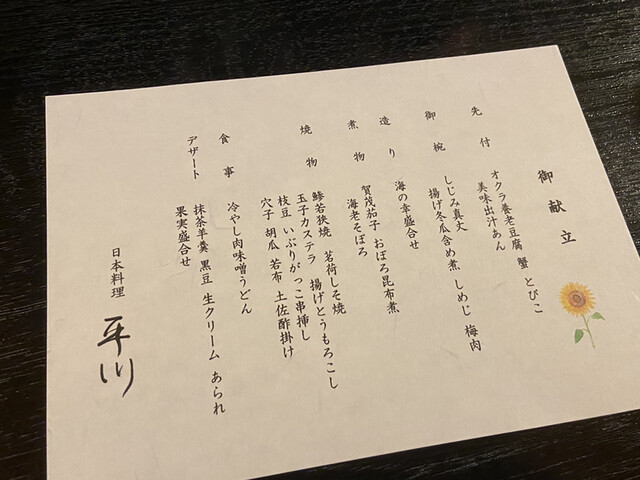 御献立
先付
オクラ養老豆腐 蟹 とびこ
美味出汁あん
御椀
しじみ真丈
揚げ冬瓜含め煮 しめじ 梅肉
造り
海の幸盛合せ
煮物
賀茂茄子 おぼろ昆布煮
海老そぼろ
焼物
鯵若狭焼 茗荷しそ焼
玉子カステラ 揚げとうもろこし
枝豆 いぶりがっこ串挿し
穴子 胡瓜 若布 土佐酢掛け
食事
冷やし肉味噌うどん
デザート
抹茶羊羹 黒豆 生クリーム あられ
果実盛合せ
日本料理 平川